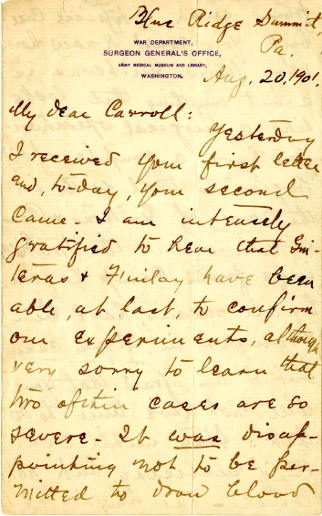 Blue Ridge Summit,
Pa.
WAR DEPARTMENT,
SURGEON GENERAL'S OFFICE,
ARMY MEDICAL MUSEUM AND LIBRARY,
WASHINGTON.
Aug. 20, 1901.
My dear Carroll:
Yesterday
I received your first letter
and, to-day, your second
came - I am intensely
gratified to hear that Gui-
teras & Finlay have been
able, at last, to confirm
our experiments, although
very sorry to learn that
two of their cases are so
severe - It was disap-
pointing not to be per-
mitted to draw blood